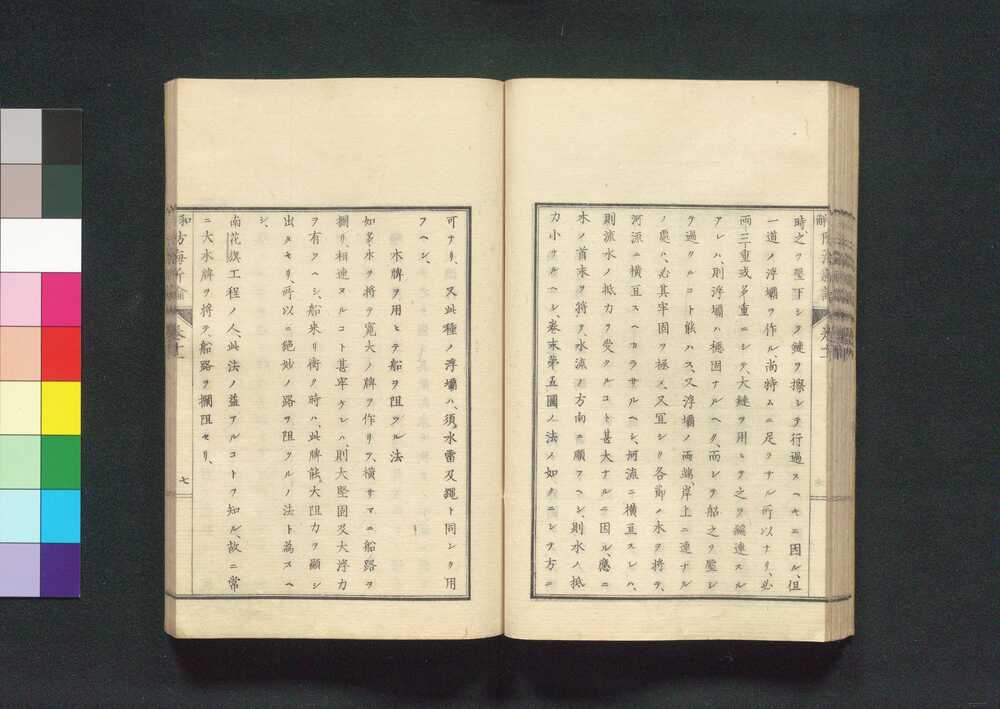 時之ヲ壓下シヲ鏈ヲ擦シテ行過スヘキニ因ル、但
一道ノ浮壩ヲ作ル尚恃ムニ足ラサル所以ナリ、必
両三重或多重ニシテ、大鏈ヲ用ヒテ之ヲ編連スル
アレハ、則浮壩ハ穏固ナルヘク、而シテ船之ヲ壓シ
ヲ過クルコト能ハス、又浮壩ノ両端、岸上ニ連ナル
ノ處ハ、必其牢固ヲ極メ、又宜シク各節ノ木ヲ将テ、
河流ニ横亘スヘカラサルヘシ、河流ニ横亘スレハ、
則流水ノ抵力ヲ受クルコト甚大ナルニ因ル、應ニ
木ノ首末ヲ将テ、水流ノ方向ニ順フヘシ、則水ノ抵
力小ナルヘシ、巻末第五圖ノ法ノ如クニシテ方ニ
可ナリ、又此種ノ浮壩ハ、須ク水雷及繩ト同シク用
フヘシ、
木牌ヲ用ヒテ船ヲ阻ツル法
如多木ヲ将テ寛大ノ牌ヲ作リテ、横サマニ船路ヲ
攔リ、相連ヌルコト甚牢ケレハ、則大堅固及大浮力
ヲ有ツヘシ、船来リ衝ク時ハ、此牌能大阻力ヲ顯シ
出タセリ、所以ニ絶妙ノ路ヲ阻ツルノ法ト為スヘ
シ、
南花旗工程ノ人、此法ノ益アルコトヲ知ル、故ニ常
ニ大木牌ヲ将テ、船路ヲ攔阻セリ、
防海新論
巻十一
七